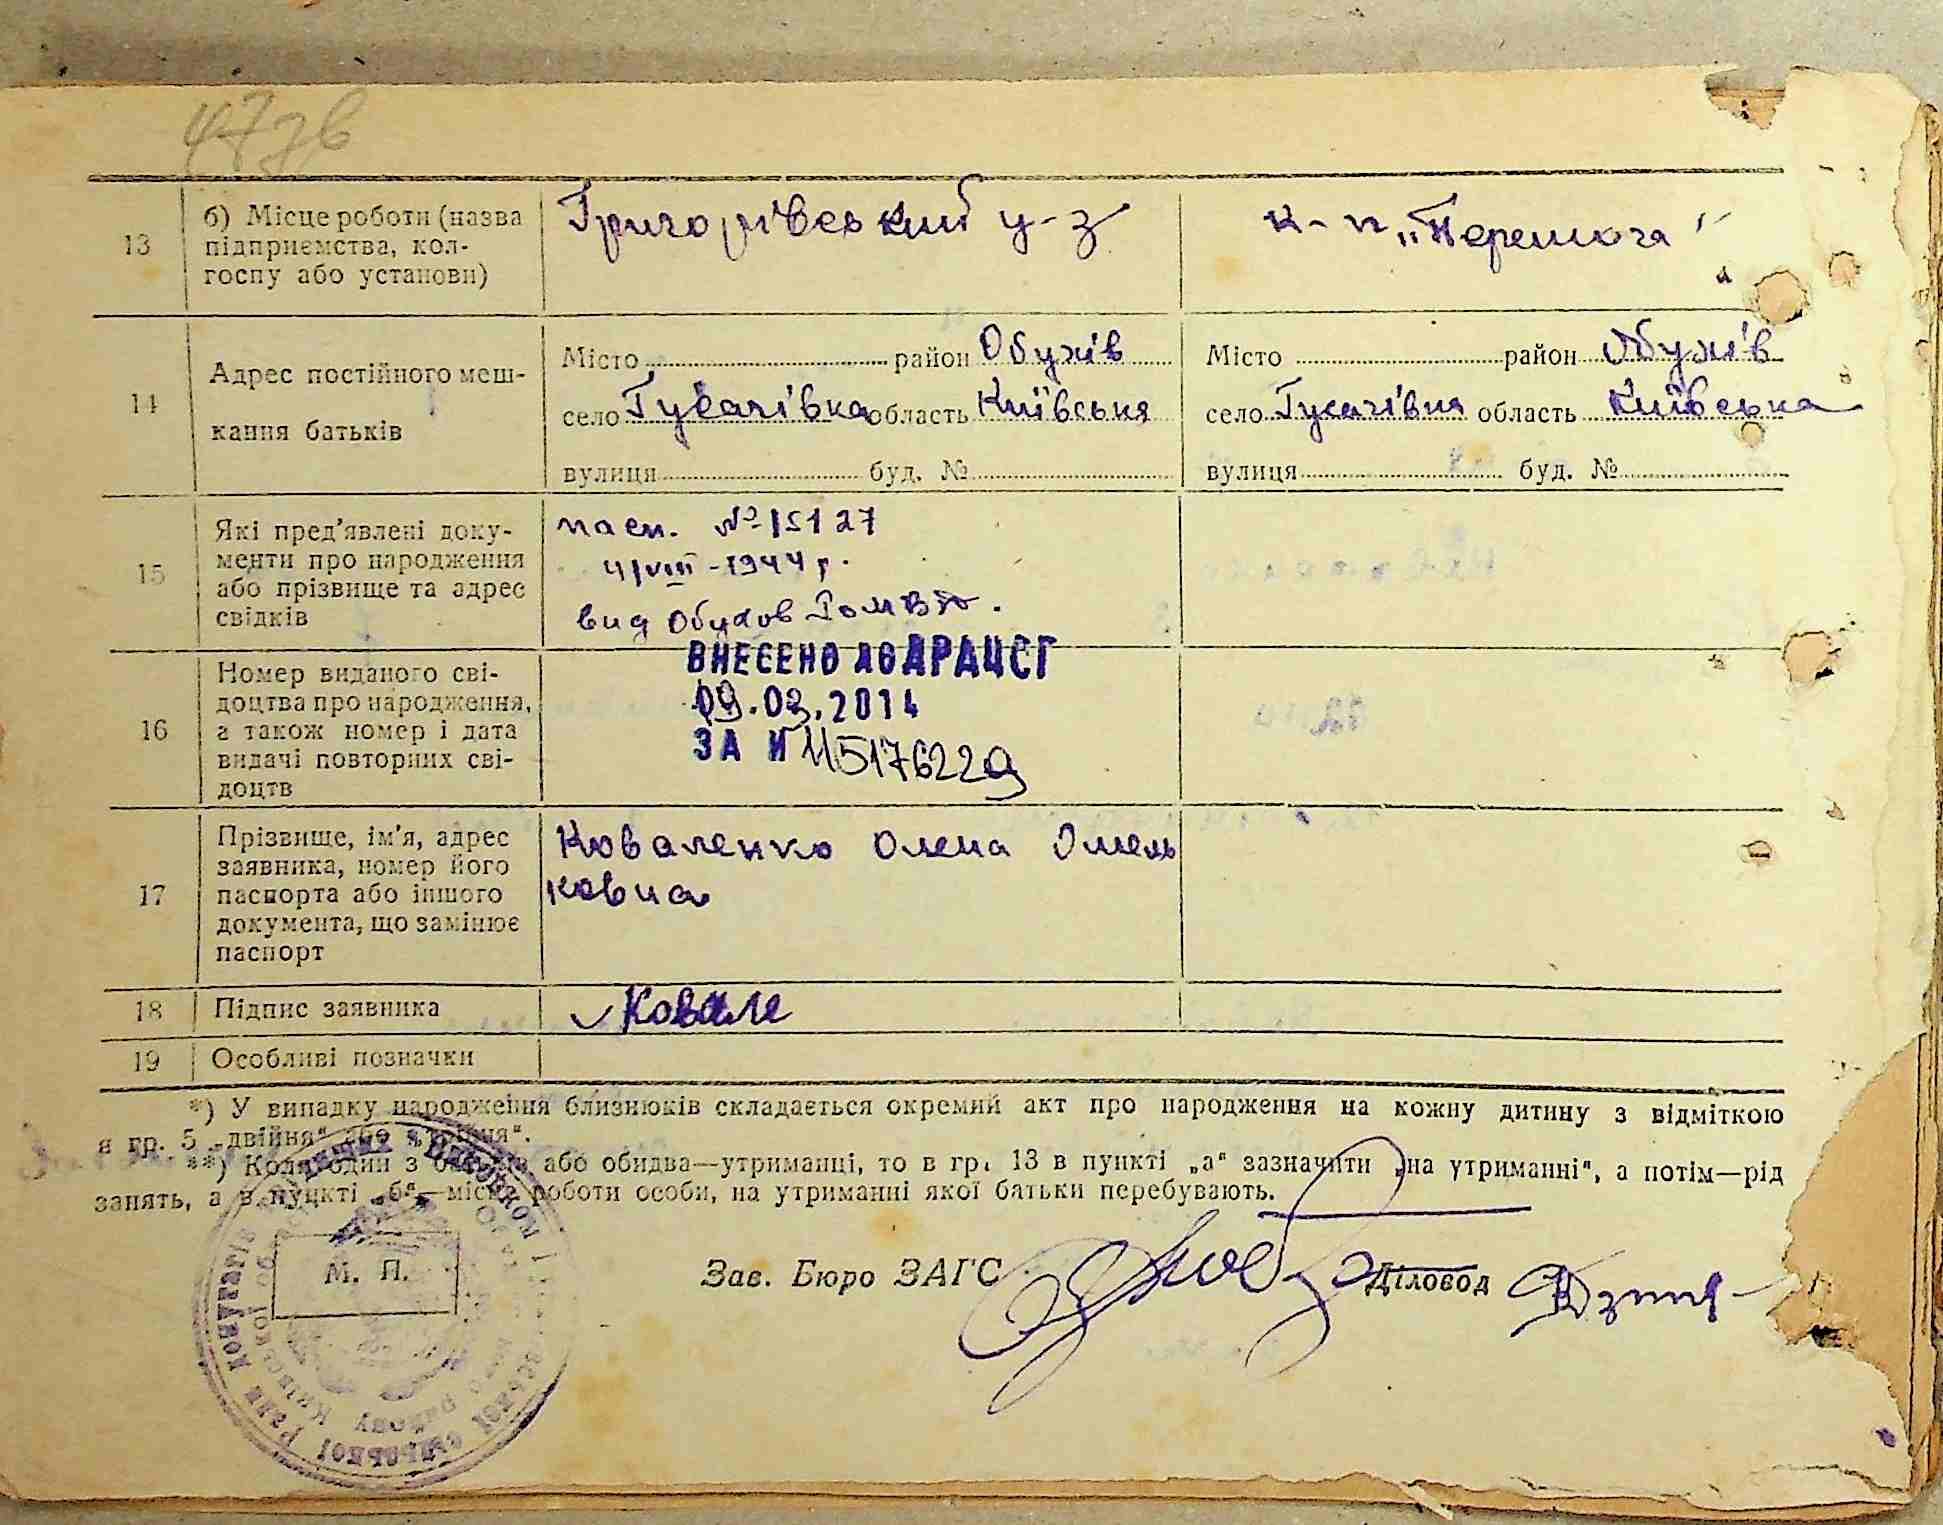 13 б) Місце роботи (назва підприємства, кол-госпу або установи) Григорівський ц-з к-п „Перемога"
14 Адрес постійного меш-кання батьків
Місто район Обухів Місто район Обухів
село Гусачівка область Київська село Гусачівка область Київська
вулиця буд. № вулиця буд. №
15 Які пред'явлені доку-
менти про народження
або прізвище та адрес
свідків
пасп. № 15127
4/VIII-1944 р.
вид Обухов
16 Номер виданого сві-
доцтва про народження,
а також номер і дата
видачі повторних сві-
доцтв
ВНЕСЕНО ДО ДРАЦСГ
09.03.2014
ЗА № 115176229
17 Прізвище, ім'я, адрес
заявника, номер його
паспорта або іншого
документа, що замінює
паспорт
Коваленко Олена Омель
ковна
18 Підпис заявника Ковале
19 Особливі позначки
*) У випадку народження близнюків складається окремий акт про народження на кожну дитину з відміткою
в гр. 5 „двійня" або „трійня".
**) Коли один з батьків або обидва—утриманці, то в гр. 13 в пункті „а" зазначити „на утриманні", а потім—рід
занять, а в пункті „б"—місце роботи особи, на утриманні якої батьки перебувають.
М. П.
Зав. Бюро ЗАГС Діловод